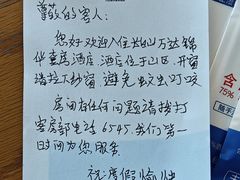 尊敬的客人：
您好欢迎入住长白山万达锦
华嘉居酒店，酒店位于山区，开窗
请拉下纱窗，避免蚊虫叮咬
房间有任何问题请拨打
客房部电话6545我们第一
时间为您服务
祝：度假愉快
含
75%
随手